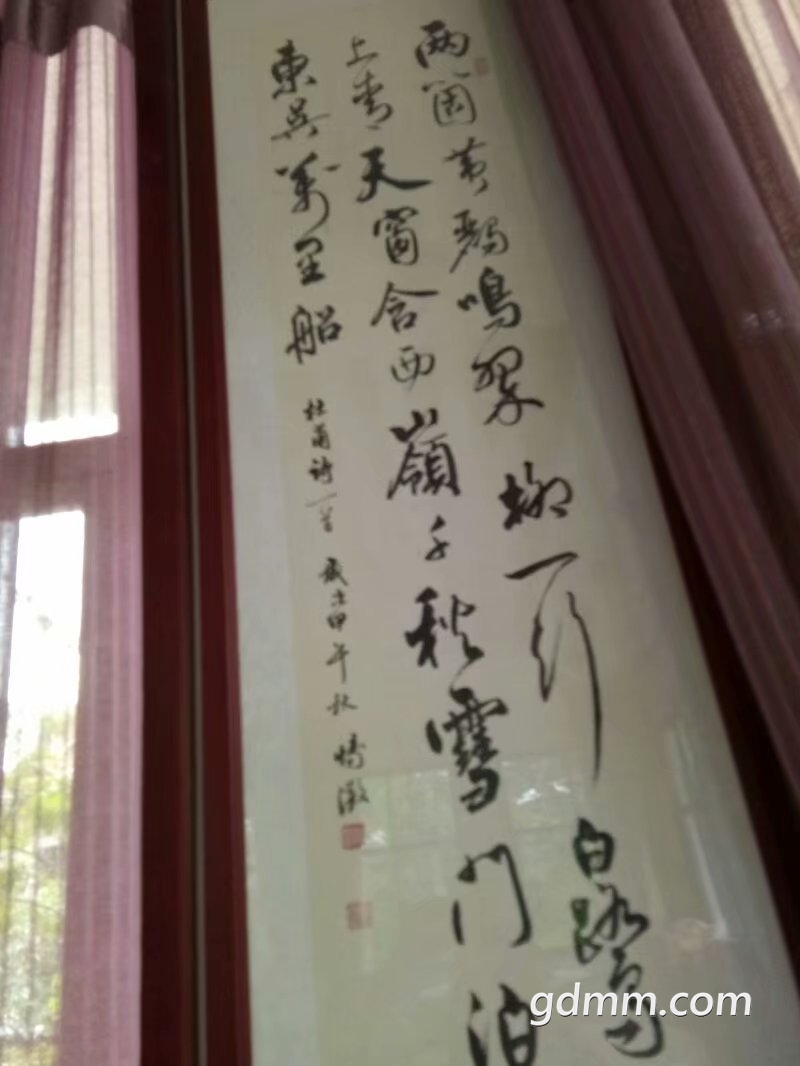 两箇黄鸝鳴翠柳一行白鷺
上青天窗含西嶺千秋雪門泊
東吳萬里船
杜甫詩一首 歲次甲午秋
gdmm.com